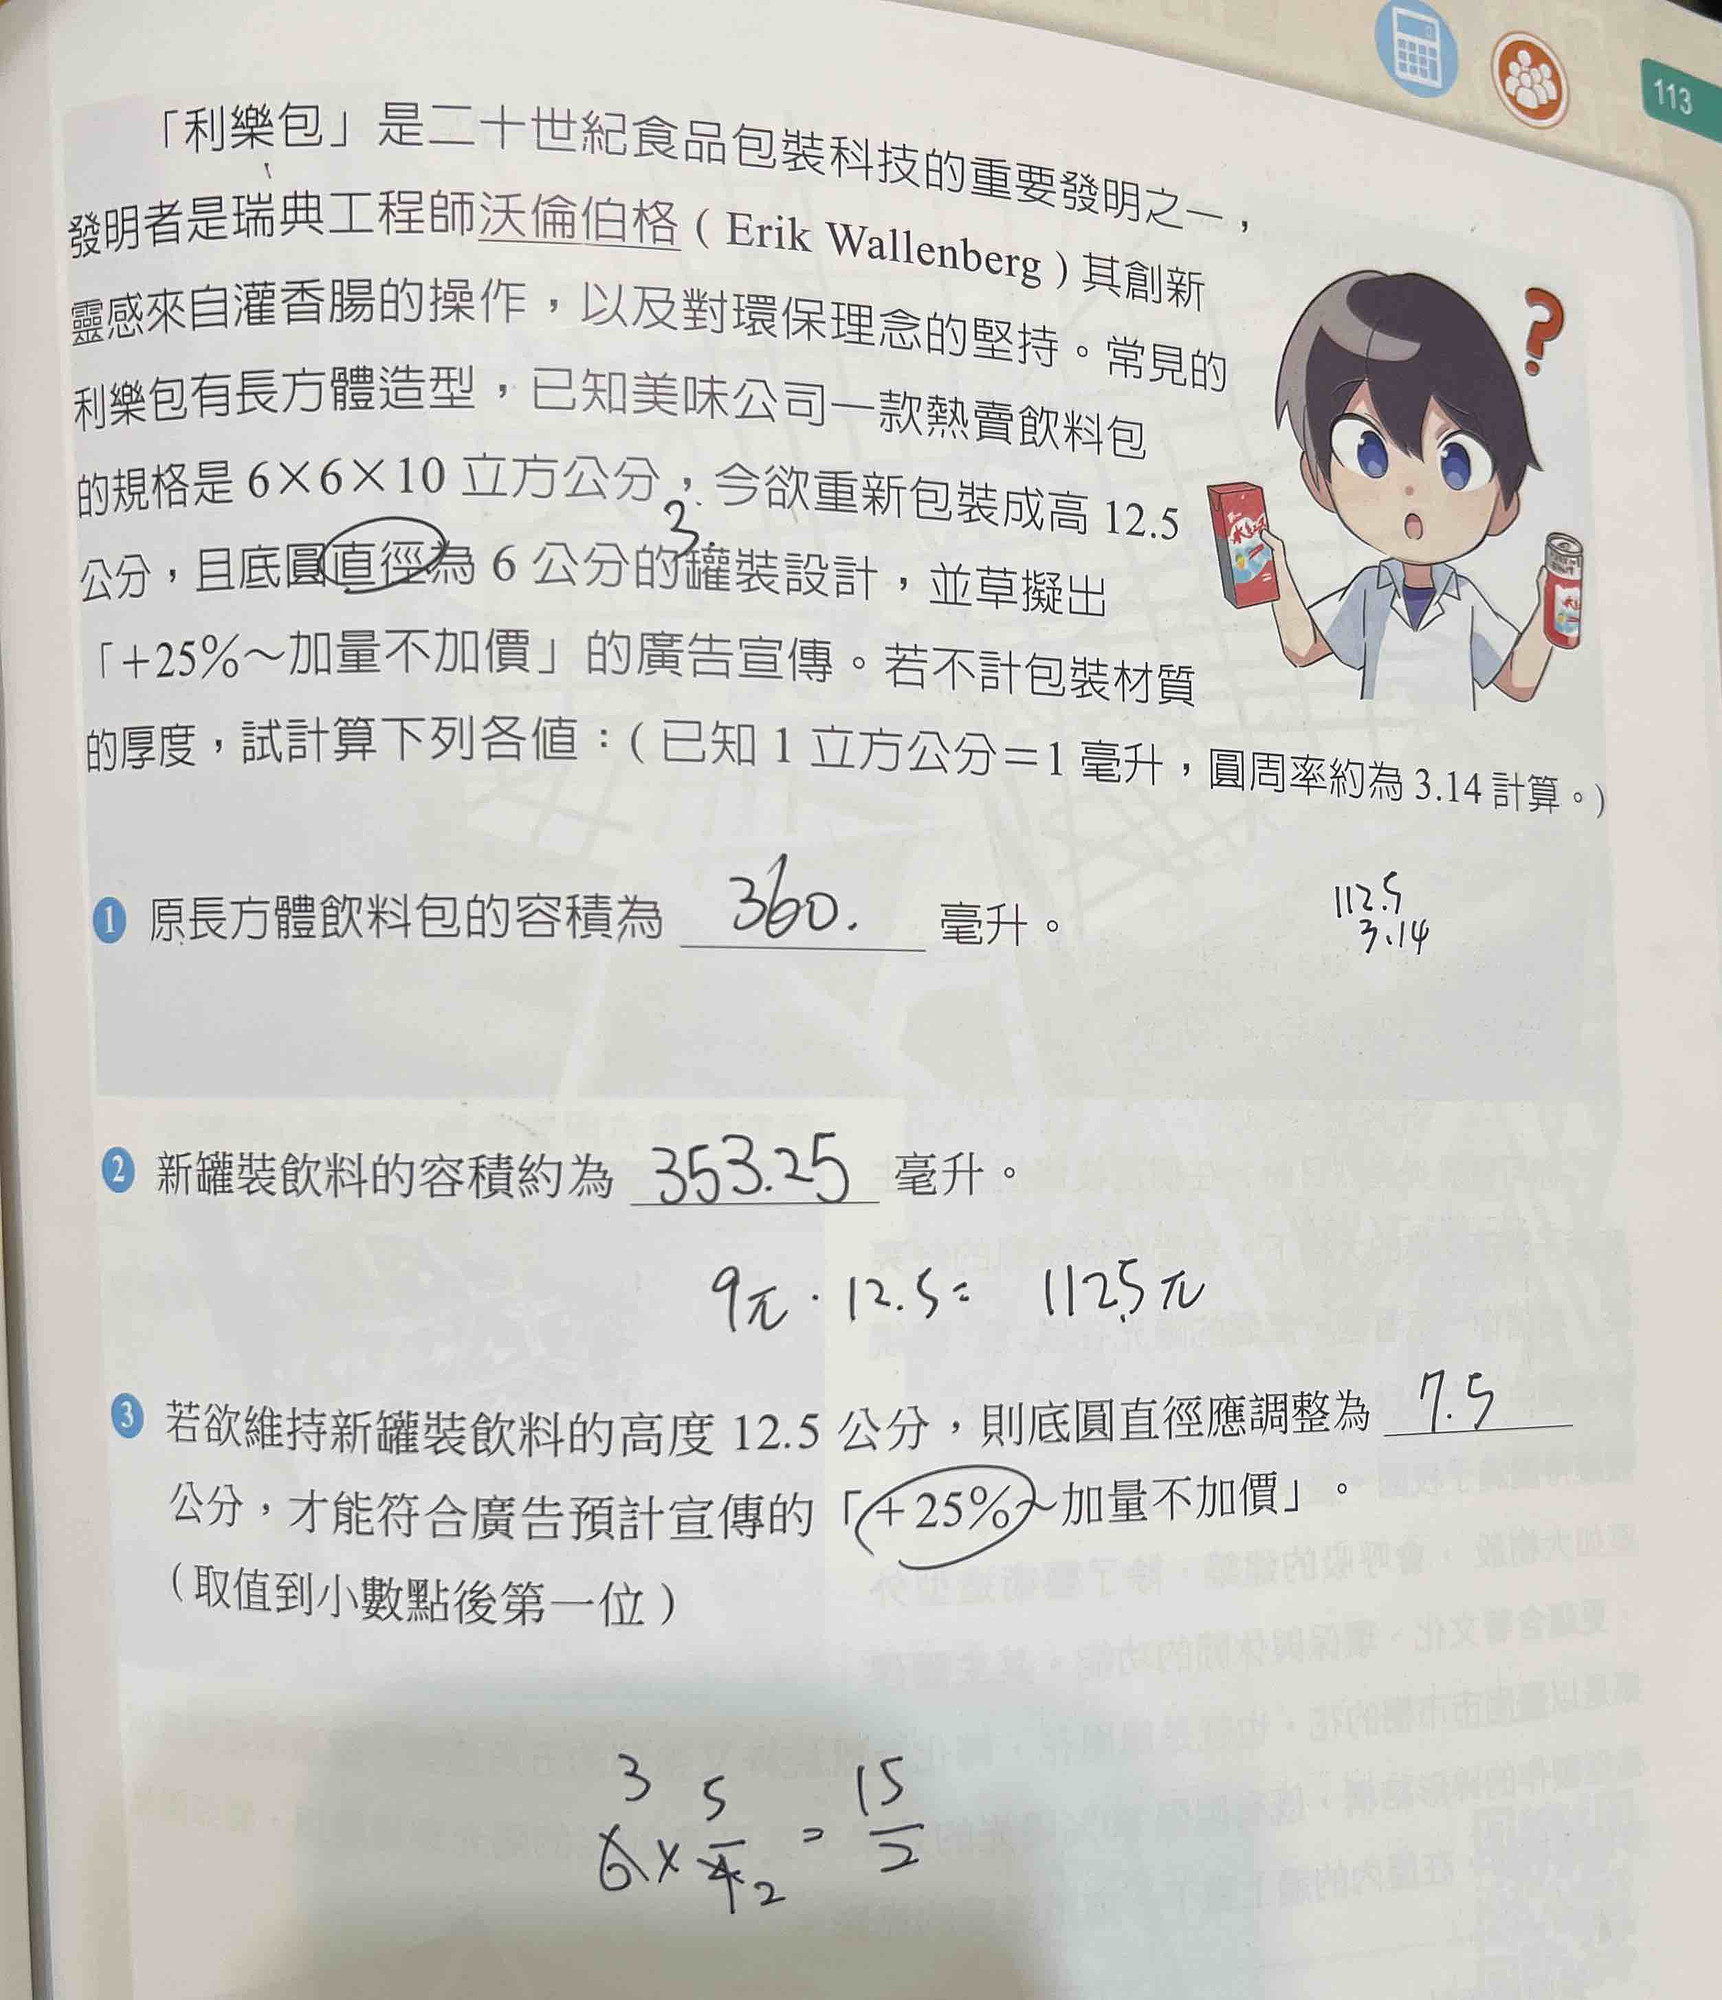 113
「利樂包」是二十世紀食品包裝科技的重要發明之一，
發明者是瑞典工程師沃倫伯格（Erik Wallenberg）其創新
靈感來自灌香腸的操作，以及對環保理念的堅持。常見的
利樂包有長方體造型，已知美味公司一款熱賣飲料包
的規格是 6×6×10 立方公分，今欲重新包裝成高 12.5
3.
公分，且底圓直徑為 6 公分的罐裝設計，並草擬出
「+25%～加量不加價」的廣告宣傳。若不計包裝材質
的厚度，試計算下列各值：(已知 1 立方公分＝1 毫升，圓周率約為 3.14 計算。)
112.5
3.14
1 原長方體飲料包的容積為 360. 毫升。
2 新罐裝飲料的容積約為 353.25 毫升。
9π · 12.5 = 112.5π
3 若欲維持新罐裝飲料的高度 12.5 公分，則底圓直徑應調整為 7.5
公分，才能符合廣告預計宣傳的「+25%～加量不加價」。
（取值到小數點後第一位）
3 5 15
6 × 4 2 = 2